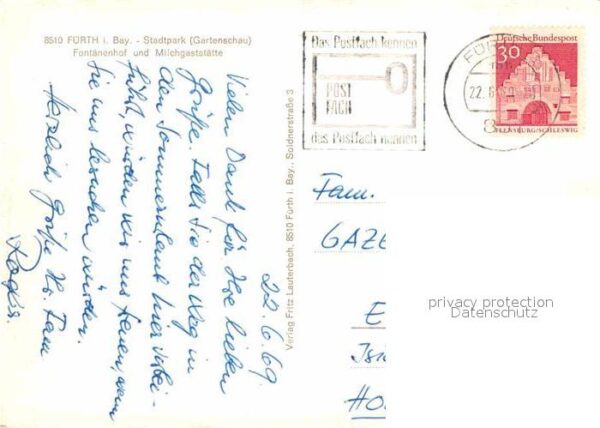 8510 FÜRTH i. Bay. - Stadtpark (Gartenschau)
Fontänenhof und Milchgaststätte
22.6.69
Vielen Dank für Ihre lieben
Grüße. Falls Sie der Weg in
den Sommerurlaub hier vorbei-
führt, würden wir uns freuen, wenn
Sie uns besuchen würden.
Herzlich Grüße Ihr. Fam
Verlag Fritz Lauterbach, 8510 Fürth i. Bay., Soldnerstraße 3
Das Postfach kennen
POST
FACH
das Postfach nennen
FÜ
22.6.69
8
Deutsche Bundespost
30
FLENSBURG/SCHLESWIG
Fam.
GAZE
E
Isi
HO
privacy protection
Datenschutz